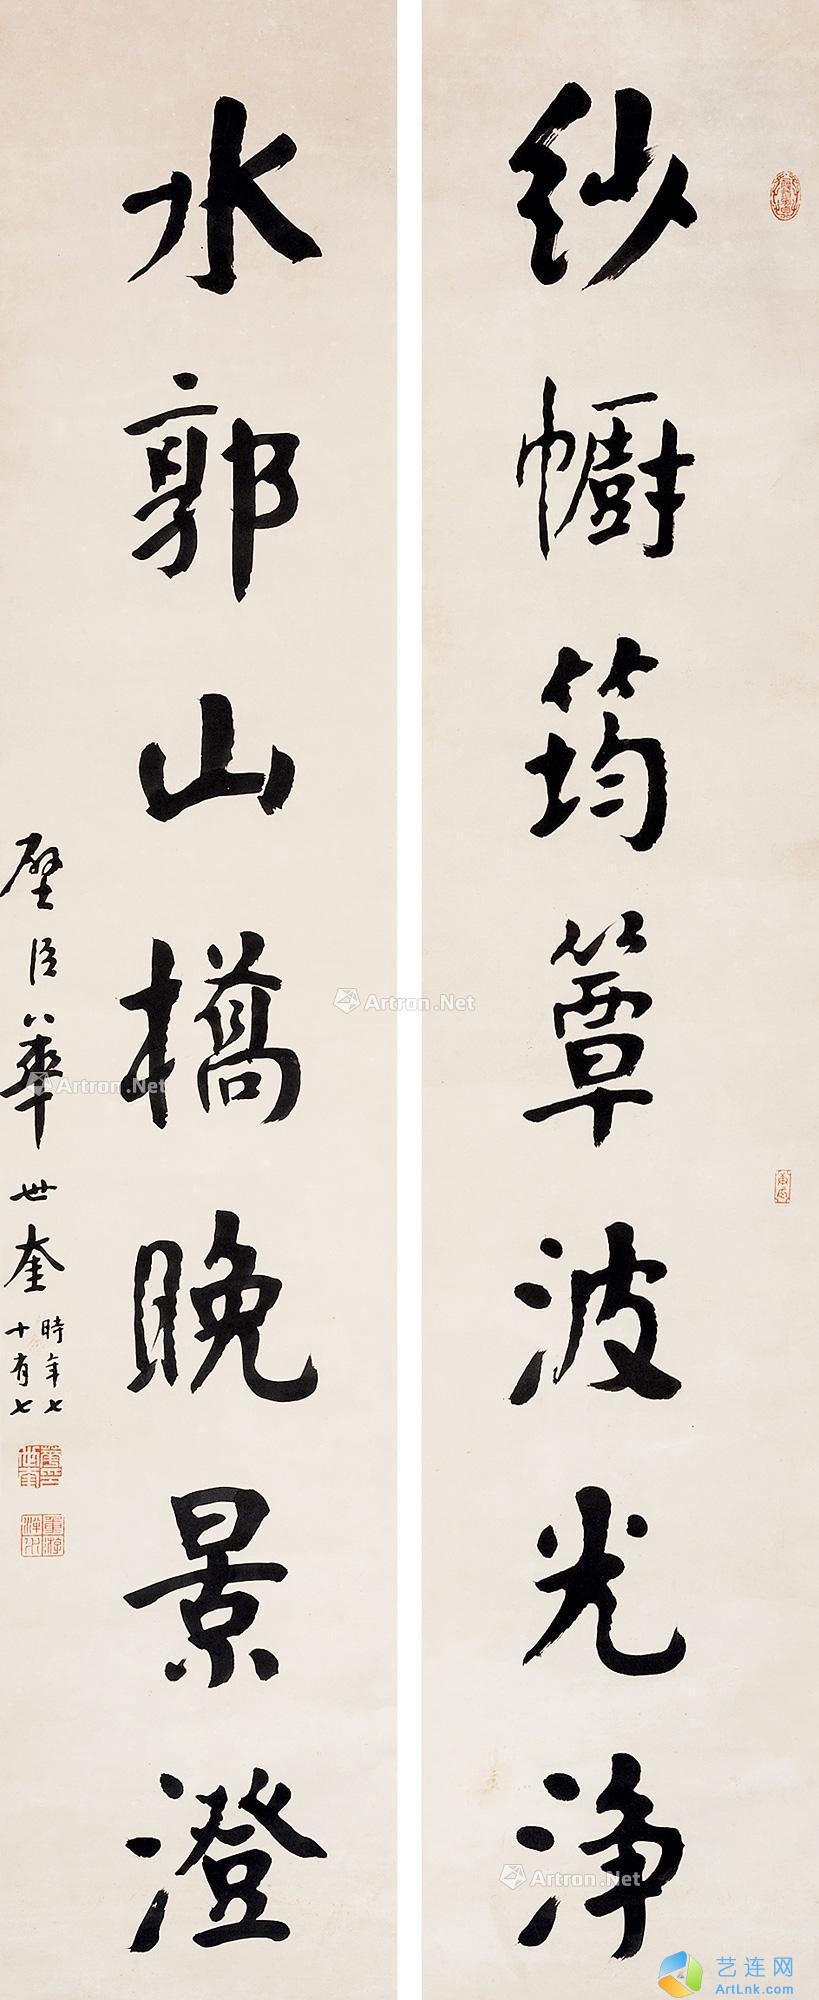 紗幮筠簟波光淨
水郭山橋晚景澄
壁臣華世奎
時年七
十有七
Artron.Net
Artron.Net
Artron.Net
艺连网
ArtLnk.com